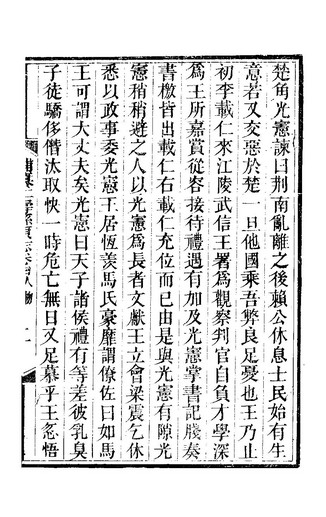 楚角光憲諫曰荆南亂離之後賴公休息士民始有生
意若又交惡於楚一旦他國乘吾弊良足憂也王乃止
初李載仁來江陵武信王署爲觀察判官自負才學深
爲王所嘉賞從容接待禮遇有加及光憲掌書記牋奏
書檄皆出載仁右載仁充位而已由是與光憲有隙光
憲稍稍避之人以光憲爲長者文獻王立會梁震乞休
悉以政事委光憲王居恆羨馬氏豪靡謂僚佐曰如馬
王可謂大丈夫矣光憲曰天子諸侯禮有等差彼乳臭
子徒驕侈僭汰取快一時危亡無日又足慕乎王忽悟
人物